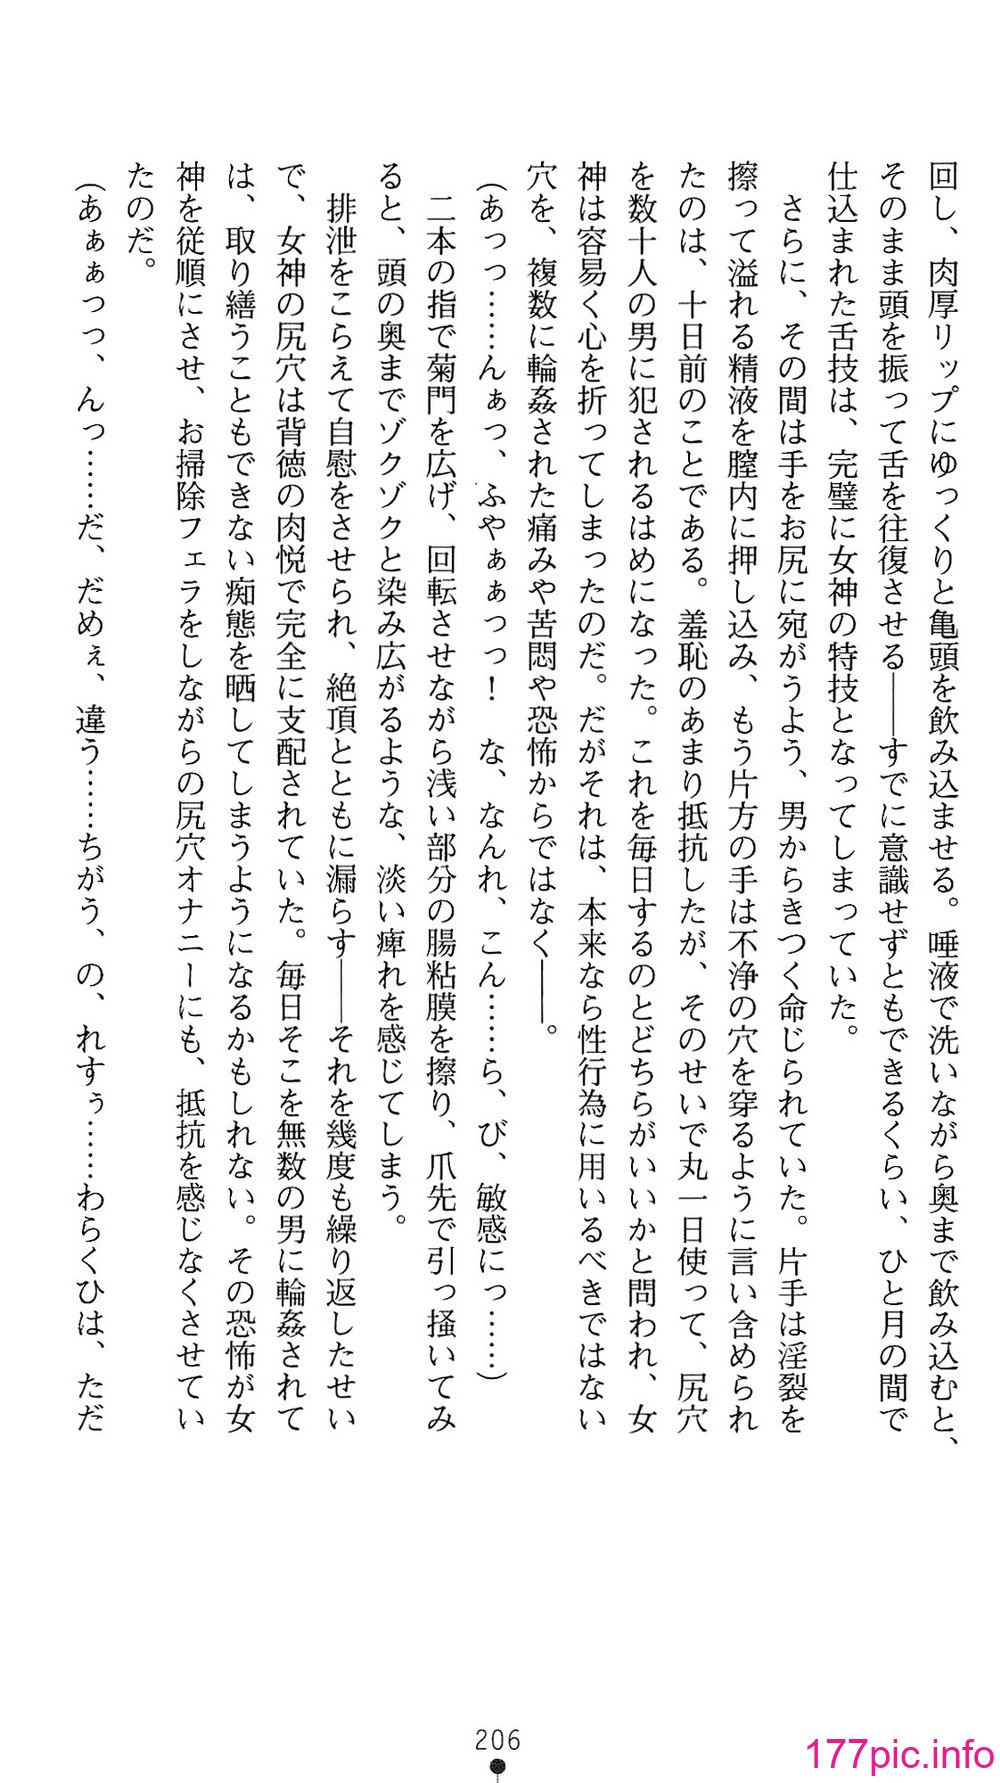 回し、肉厚リップにゆっくりと亀頭を飲み込ませる。唾液で洗いながら奥まで飲み込むと、
そのまま頭を振って舌を往復させる――すでに意識せずともできるくらい、ひと月の間で
仕込まれた舌技は、完璧に女神の特技となってしまっていた。
さらに、その間は手をお尻に宛がうよう、男からきつく命じられていた。片手は淫裂を
擦って溢れる精液を膣内に押し込み、もう片方の手は不浄の穴を穿るように言い含められ
たのは、十日前のことである。羞恥のあまり抵抗したが、そのせいで丸一日使って、尻穴
を数十人の男に犯されるはめになった。これを毎日するのとどちらがいいかと問われ、女
神は容易く心を折ってしまったのだ。だがそれは、本来なら性行為に用いるべきではない
穴を、複数に輪姦された痛みや苦悶や恐怖からではなく――。
(あっっ……んぁっ、ふやぁぁっっ！　な、なんれ、こん……ら、び、敏感にっ……)
二本の指で菊門を広げ、回転させながら浅い部分の腸粘膜を擦り、爪先で引っ掻いてみ
ると、頭の奥までゾクゾクと染み広がるような、淡い痺れを感じてしまう。
排泄をこらえて自慰をさせられ、絶頂とともに漏らす――それを幾度も繰り返したせい
で、女神の尻穴は背徳の肉悦で完全に支配されていた。毎日そこを無数の男に輪姦されて
は、取り繕うこともできない痴態を晒してしまうようになるかもしれない。その恐怖が女
神を従順にさせ、お掃除フェラをしながらの尻穴オナニーにも、抵抗を感じなくさせてい
たのだ。
(あぁぁっっ、んっ……だ、だめぇ、違う……ちがう、の、れすぅ……わらくひは、ただ
206
177pic.info